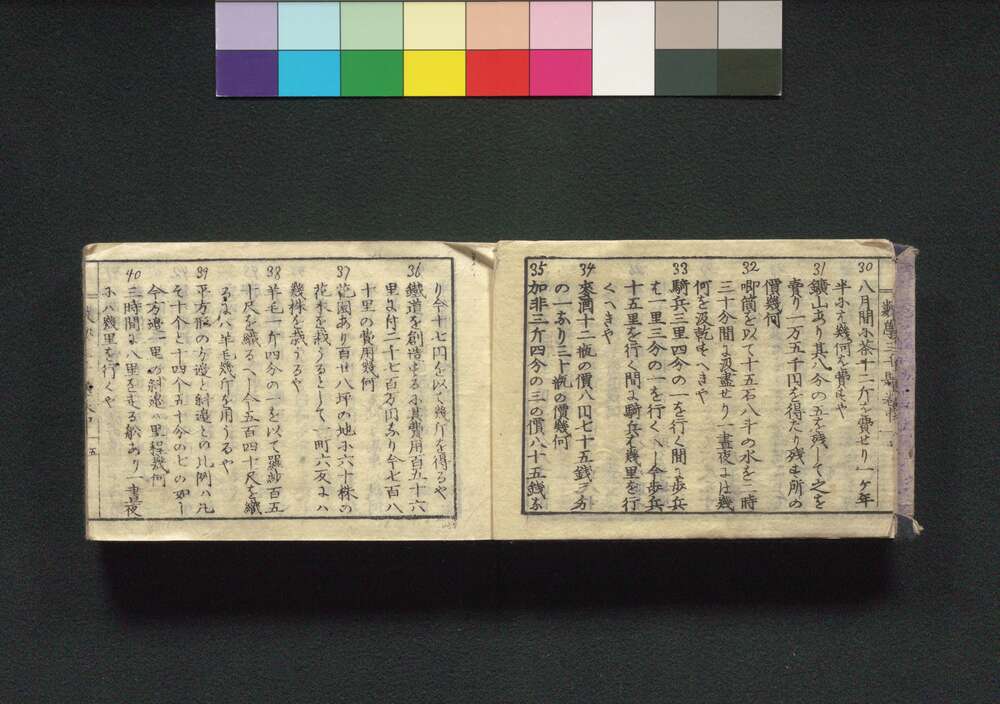 30 八月間ニ茶十二斤を費せり一ヶ年
半ニハ幾何を費すや
31 鑛山あり其八分の五を残して之を
賣り一万五千円を得たり残る所の
價幾何
32 喞筒を以て十五石八斗の水を二時
三十分間に汲盡せり一晝夜には幾
何を汲乾すへきや
33 騎兵三里四分の一を行く間に歩兵
は一里三分の一を行くへし今歩兵
十五里を行く間に騎兵は幾里を行
くへきや
34 麥酒十二瓶の價八円七十五銭
の一なり三十瓶の價幾何
35 加非三斤四分の三の價八十五銭な
り今十七円を以て幾斤を得るや
36 鐵道を創造するに其費用百五十六
里に付二千七百万円なり今七百八
十里の費用幾何
37 花園あり百廿八坪の地に六十株の
花木を栽うるとして一町六反には
幾株を栽うるや
38 羊毛一斤四分の一を以て羅紗百五
十尺を織るへし今五百四十尺を織
るには羊毛幾斤を用うるや
39 平方形の方邊と斜邊との比例ハ凡
そ十个と十四个五十分の七の如し
今方邊一里の斜邊ハ里程幾何
40 三時間に八里を走る舩あり一晝夜
にハ幾里を行くや
五